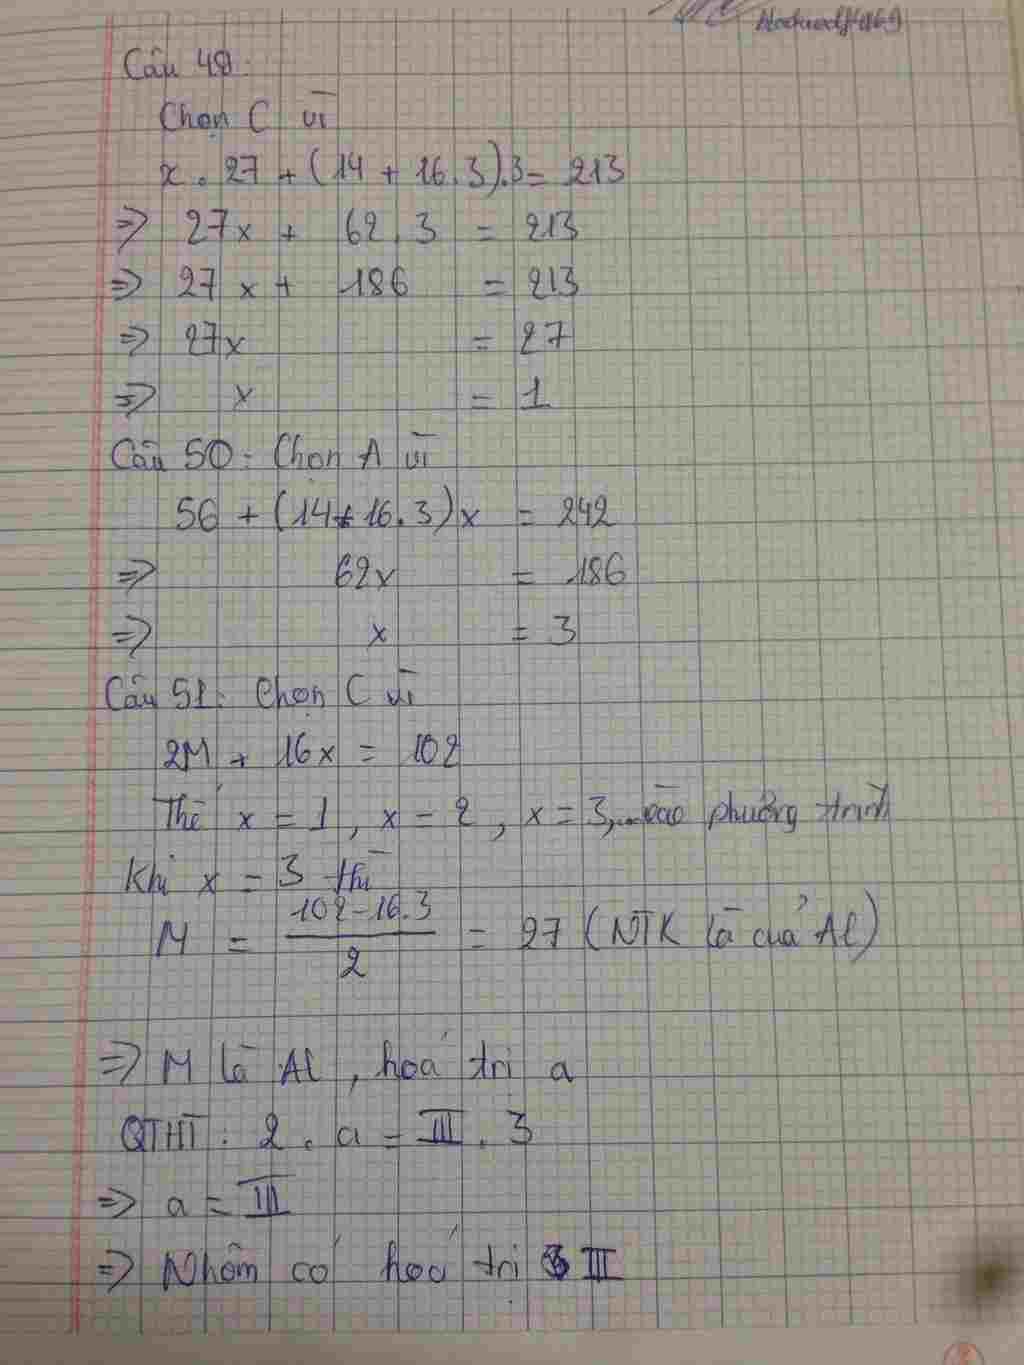 Câu 48:
Chọn C vì
x . 27 + (14 + 16.3).3 = 213
=> 27x + 62.3 = 213
=> 27x + 186 = 213
=> 27x = 27
=> x = 1
Câu 50: Chọn A vì
56 + (14 + 16.3)x = 242
=> 62x = 186
=> x = 3
Câu 51: Chọn C vì
2M + 16x = 102
Thế x = 1, x = 2, x = 3,... vào phường trình
Khi x = 3 thì
M = \frac{102 - 16.3}{2} = 27 (NTK là của Al)
=> M là Al, hoá trị a
QTHT: 2 . a = III . 3
=> a = III
=> Nhôm có hoá trị III